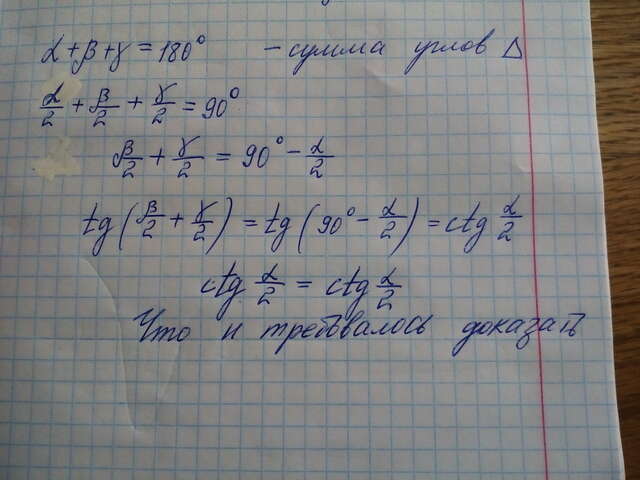 α+β+γ = 180° - сумма углов Δ
α/2 + β/2 + γ/2 = 90°
β/2 + γ/2 = 90° - α/2
tg(β/2 + γ/2) = tg(90° - α/2) = ctg α/2
ctg α/2 = ctg α/2
Что и требовалось доказать